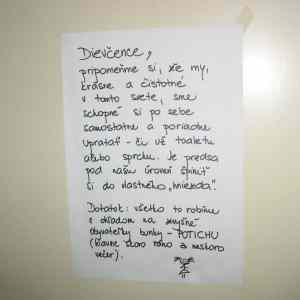 Dievčence,
pripomeňme si, že my,
krásne a čistotné
v tomto svete, sme
schopné si po sebe
samostatne a poriadne
upratať - či už toaletu
alebo sprchu. Je predsa
pod našu úroveň špiniť
si do vlastného „hniezda".
Dodatok: všetko to robíme
s ohľadom na
obyvateľky bunky - POTICHU
(hlavne skoro ráno a neskoro
večer).